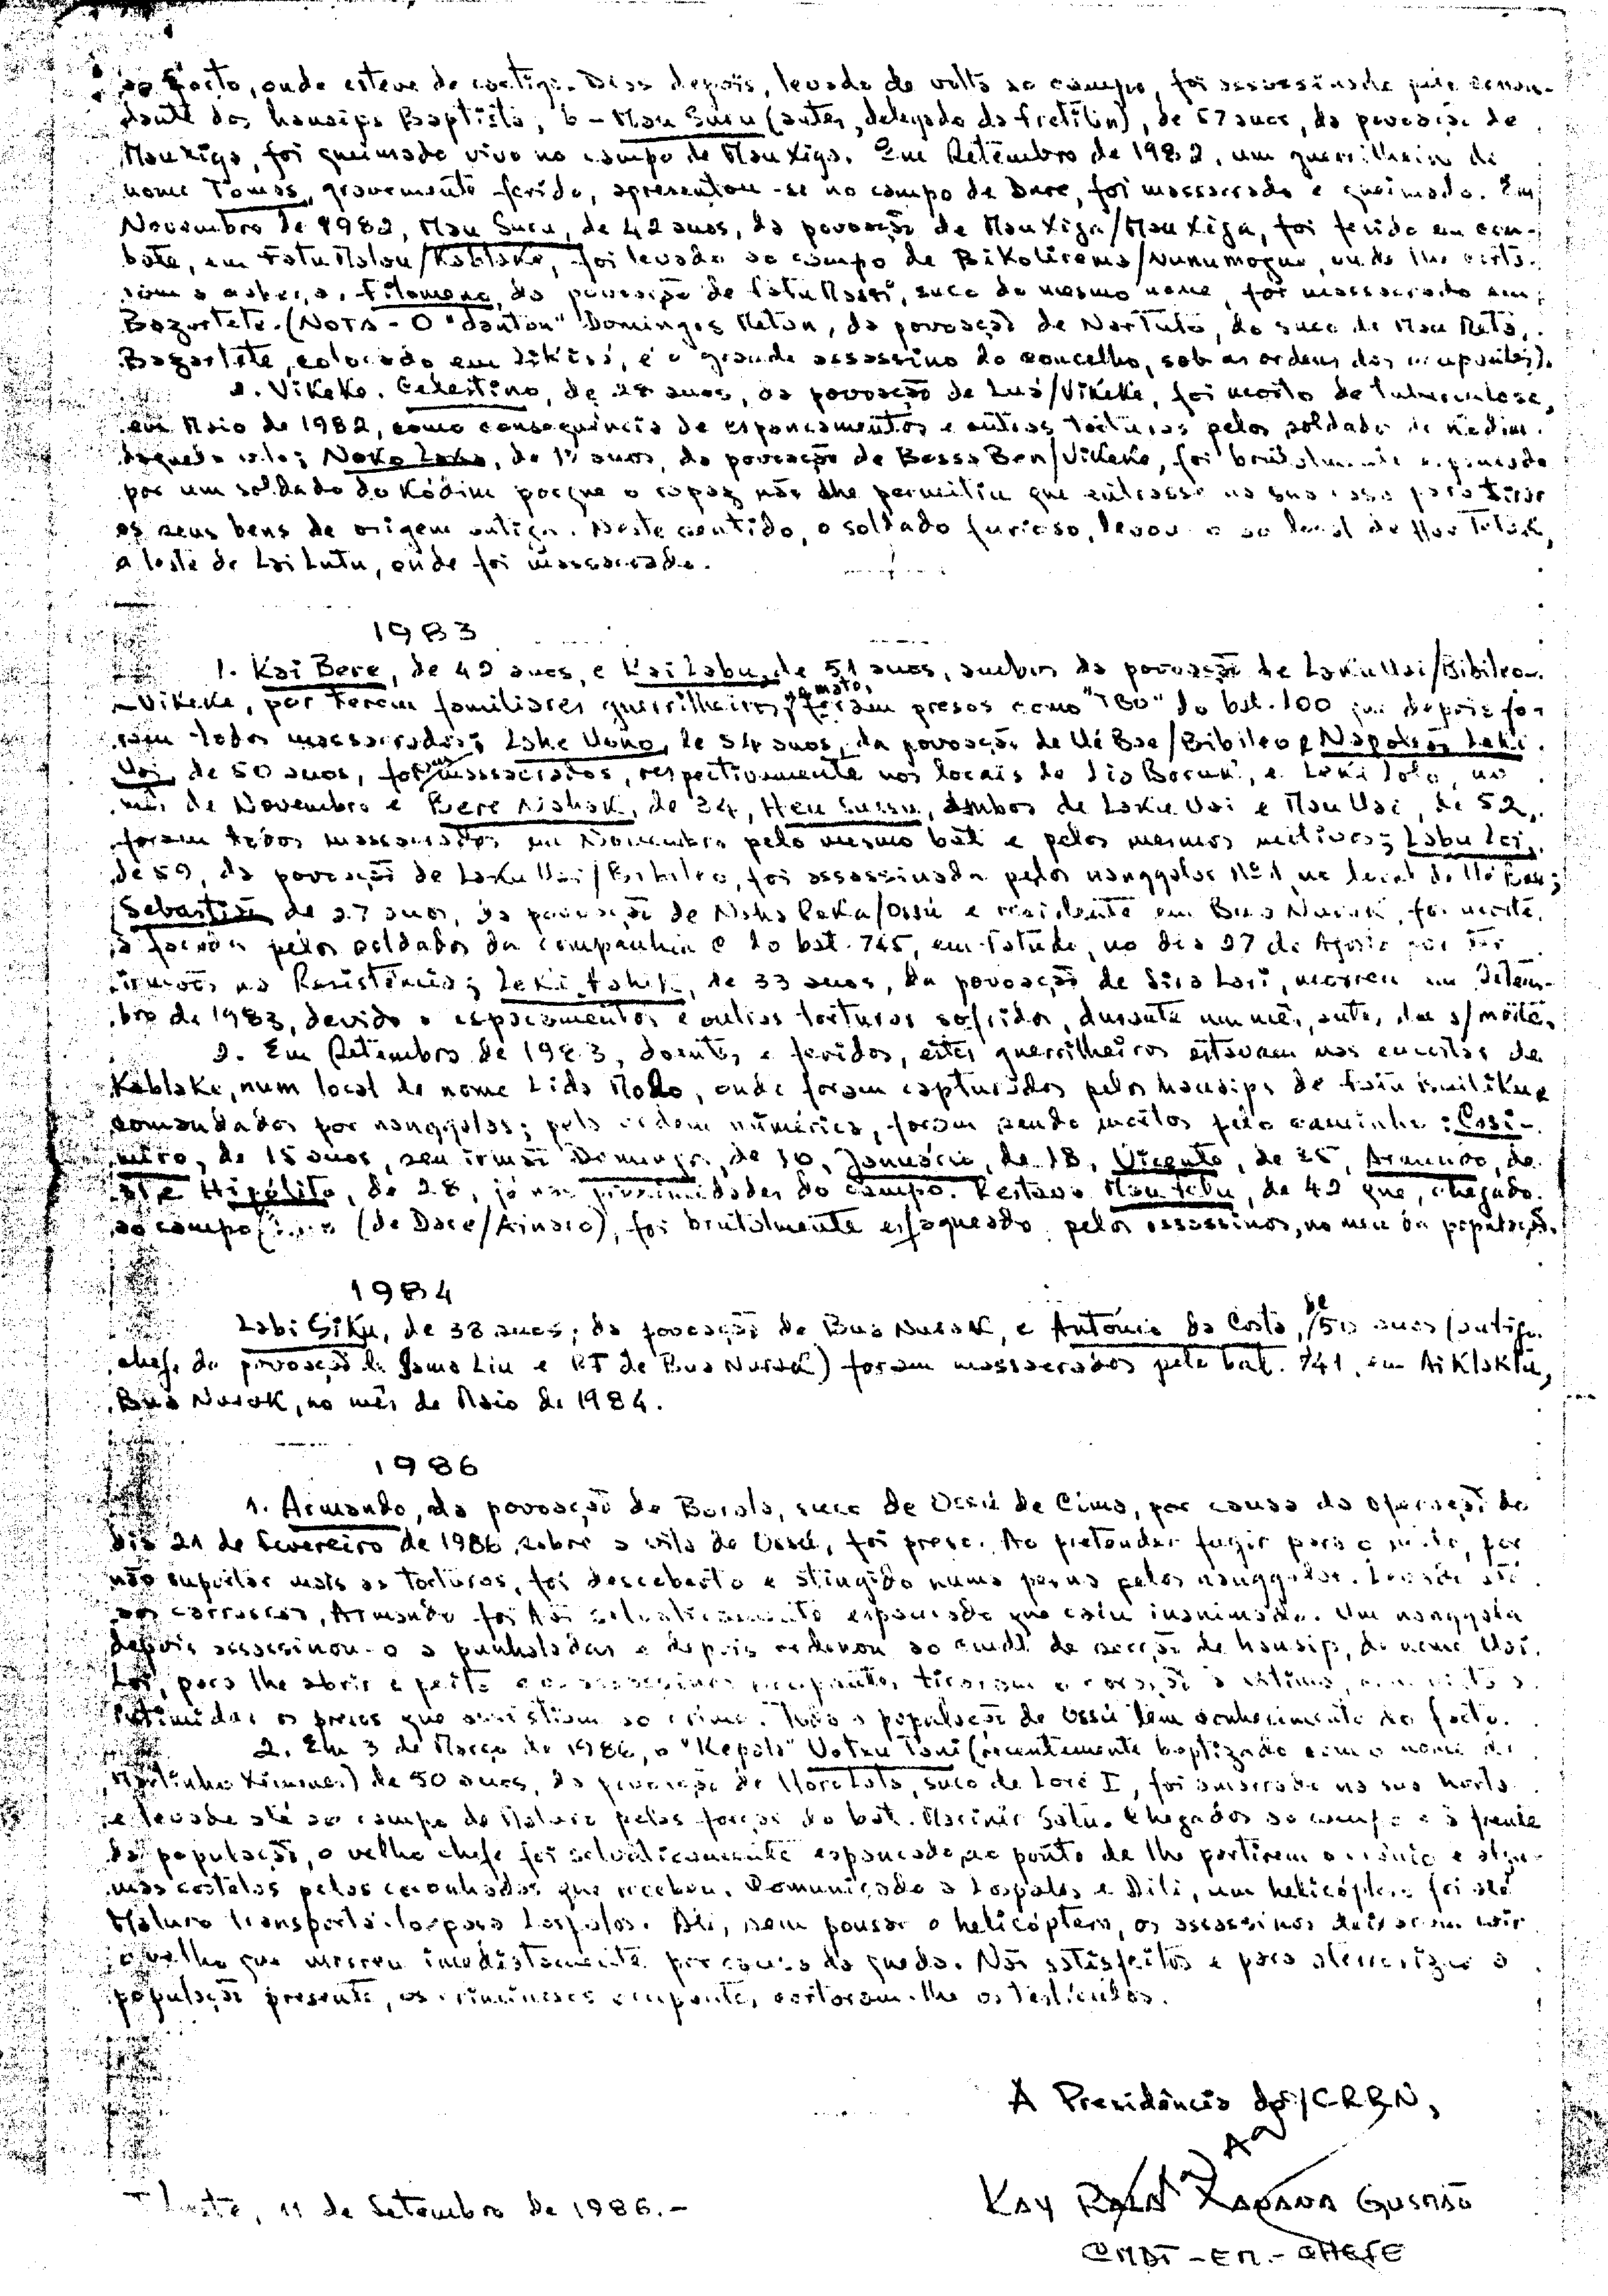 ao Posto, onde esteve de castigo. Dias depois, levado de volta ao campo, foi assassinado pelo coman-
dante dos hansips Baptista; 6 - Mau Suru (antes, delegado da fretilin), de 57 anos, da povoação de
Mauxiga, foi queimado vivo no campo de Mauxiga. Em Setembro de 1982, um guerrilheiro de
nome Tomas, gravemente ferido, apresentou-se no campo de Dare, foi massacrado e queimado. Em
Novembro de 1982, Mau Suru, de 42 anos, da povoação de Mauxiga/Mauxiga, foi ferido em com-
bate, em FatuMalau/Kablake, foi levado ao campo de /Nunumogue, onde lhe corta-
ram a cabeça. Filomeno, da povoação de FatuMassi, suco do mesmo nome, foi massacrado em
Bazartete. (NOTA - O "danton" Domingos , da povoação de , do suco de Mau ,
Bazartete, colocado em Likisá, é o grande assassino do concelho, sob as ordens dos ocupantes).
2. Vikeke. Celestino, de 28 anos, da povoação de Luá/Vikeke, foi morto de tuberculose,
em Maio de 1982, como consequência de espancamentos e outras torturas pelos soldados do Kodim
daquela vila; Noko Loko, de anos, da povoação de /Vikeke, foi brutalmente espancado
por um soldado do Kódim porque o rapaz não lhe permitiu que entrasse na sua casa para tirar
os seus bens de origem antiga. Neste sentido, o soldado furioso, levou-o ao local de ,
a leste de Lailutu, onde foi massacrado.
1983
1. Kai Bere, de 42 anos, e Kai Labu, de 51 anos, ambos da povoação de Laku Uai/Bibileo-
-Vikeke, por terem familiares guerrilheiros, no mato, foram presos como "TBO" do bat. 100 que depois fo-
ram todos massacrados; Loke Uono, de 54 anos, da povoação de Ué Bae/Bibileo e Napoleão Leki
Uai, de 50 anos, foram massacrados, respectivamente nos locais de Lia Boruk, e Leki Lolo, no
mês de Novembro e Bere Nishak, de 34, Heu Sussu, ambos de Laku Uai e Mau Uai, de 52,
foram todos massacrados em Novembro pelo mesmo bat e pelos mesmos motivos; Labu Loi,
de 59, da povoação de Laku Uai/Bibileo, foi assassinado pelos nanggalas no local de ;
Sebastião de 27 anos, da povoação de Naha Reka/Ossú e residente em Bua Nurak, foi morto
à facada pelos soldados da companhia C do bat. 745, em , no dia 27 de Agosto por ter
irmãos na Resistência; Leki Tahik, de 33 anos, da povoação de Lira Lari, morreu em Setem-
bro de 1983, devido a espancamentos e outras torturas sofridas, durante um mês, antes da s/morte.
2. Em Setembro de 1983, doentes e feridos, estes guerrilheiros estavam nas encostas de
Kablake, num local de nome Lida Modo, onde foram capturados pelos hansips de
comandados por nanggalas; pela ordem numérica, foram sendo mortos pelo caminho: Casi-
miro, de 15 anos, seu irmão Domingos, de 10, Januário, de 18, Vicente, de 25, Armindo, de
e Hipólito, de 28, já nas proximidades do campo. Restava Mau , de 42 que, chegado
ao campo (de Dare/Ainaro), foi brutalmente esfaqueado pelos assassinos, no meio da população.
1984
Labi Siku, de 38 anos, da povoação de Bua Nurak, e António da Costa, de 50 anos (antigo
chefe da povoação de Sama Liu e RT de Bua Nurak) foram massacrados pelo bat. 741, em Aiklakta,
Bua Nurak, no mês de Maio de 1984.
1986
1. Armando, da povoação de Borala, suco de Ossú de Cima, por causa da operação do
dia 21 de Fevereiro de 1986 sobre a vila de Ossú, foi preso. Ao pretender fugir para o mato, por
não suportar mais as torturas, foi descoberto e atingido numa perna pelos nanggalas. Levado até
aos carrascos, Armando foi tão selvaticamente espancado que caiu inanimado. Um nanggala
depois assassinou-o a punhaladas e depois ordenou ao cmdt. de secção de hansip, de nome Uai
Loi, para lhe abrir o peito e os assassinos ocupantes tiraram o coração à vítima, com vista a
intimidar os presos que assistiam ao crime. Toda a população de Ossú tem conhecimento do facto.
2. Em 3 de Março de 1986, o "Kepala" Uotau Tani (recentemente baptizado com o nome de
Martinho Ximenes) de 50 anos, da povoação de , suco de Loré I, foi amarrado na sua horta
e levado até ao campo de Maluro pelas forças do bat. Marinir Satu. Chegados ao campo e à frente
da população, o velho chefe foi selvaticamente espancado, ao ponto de lhe partirem o crânio e algu-
mas costelas pelas coronhadas que recebeu. Comunicado a Lospalos e Dili, um helicóptero foi até
Maluro transportá-lo para Lospalos. Ali, sem pousar o helicóptero, os assassinos deixaram cair
o velho que morreu imediatamente por causa da queda. Não satisfeitos e para aterrorizar a
população presente, os criminosos ocupantes cortaram-lhe os testículos.
A Presidência do/CRRN,
Kay Rala Xanana Gusmão
CMDT-EM-CHEFE
Leste, 11 de Setembro de 1986.-